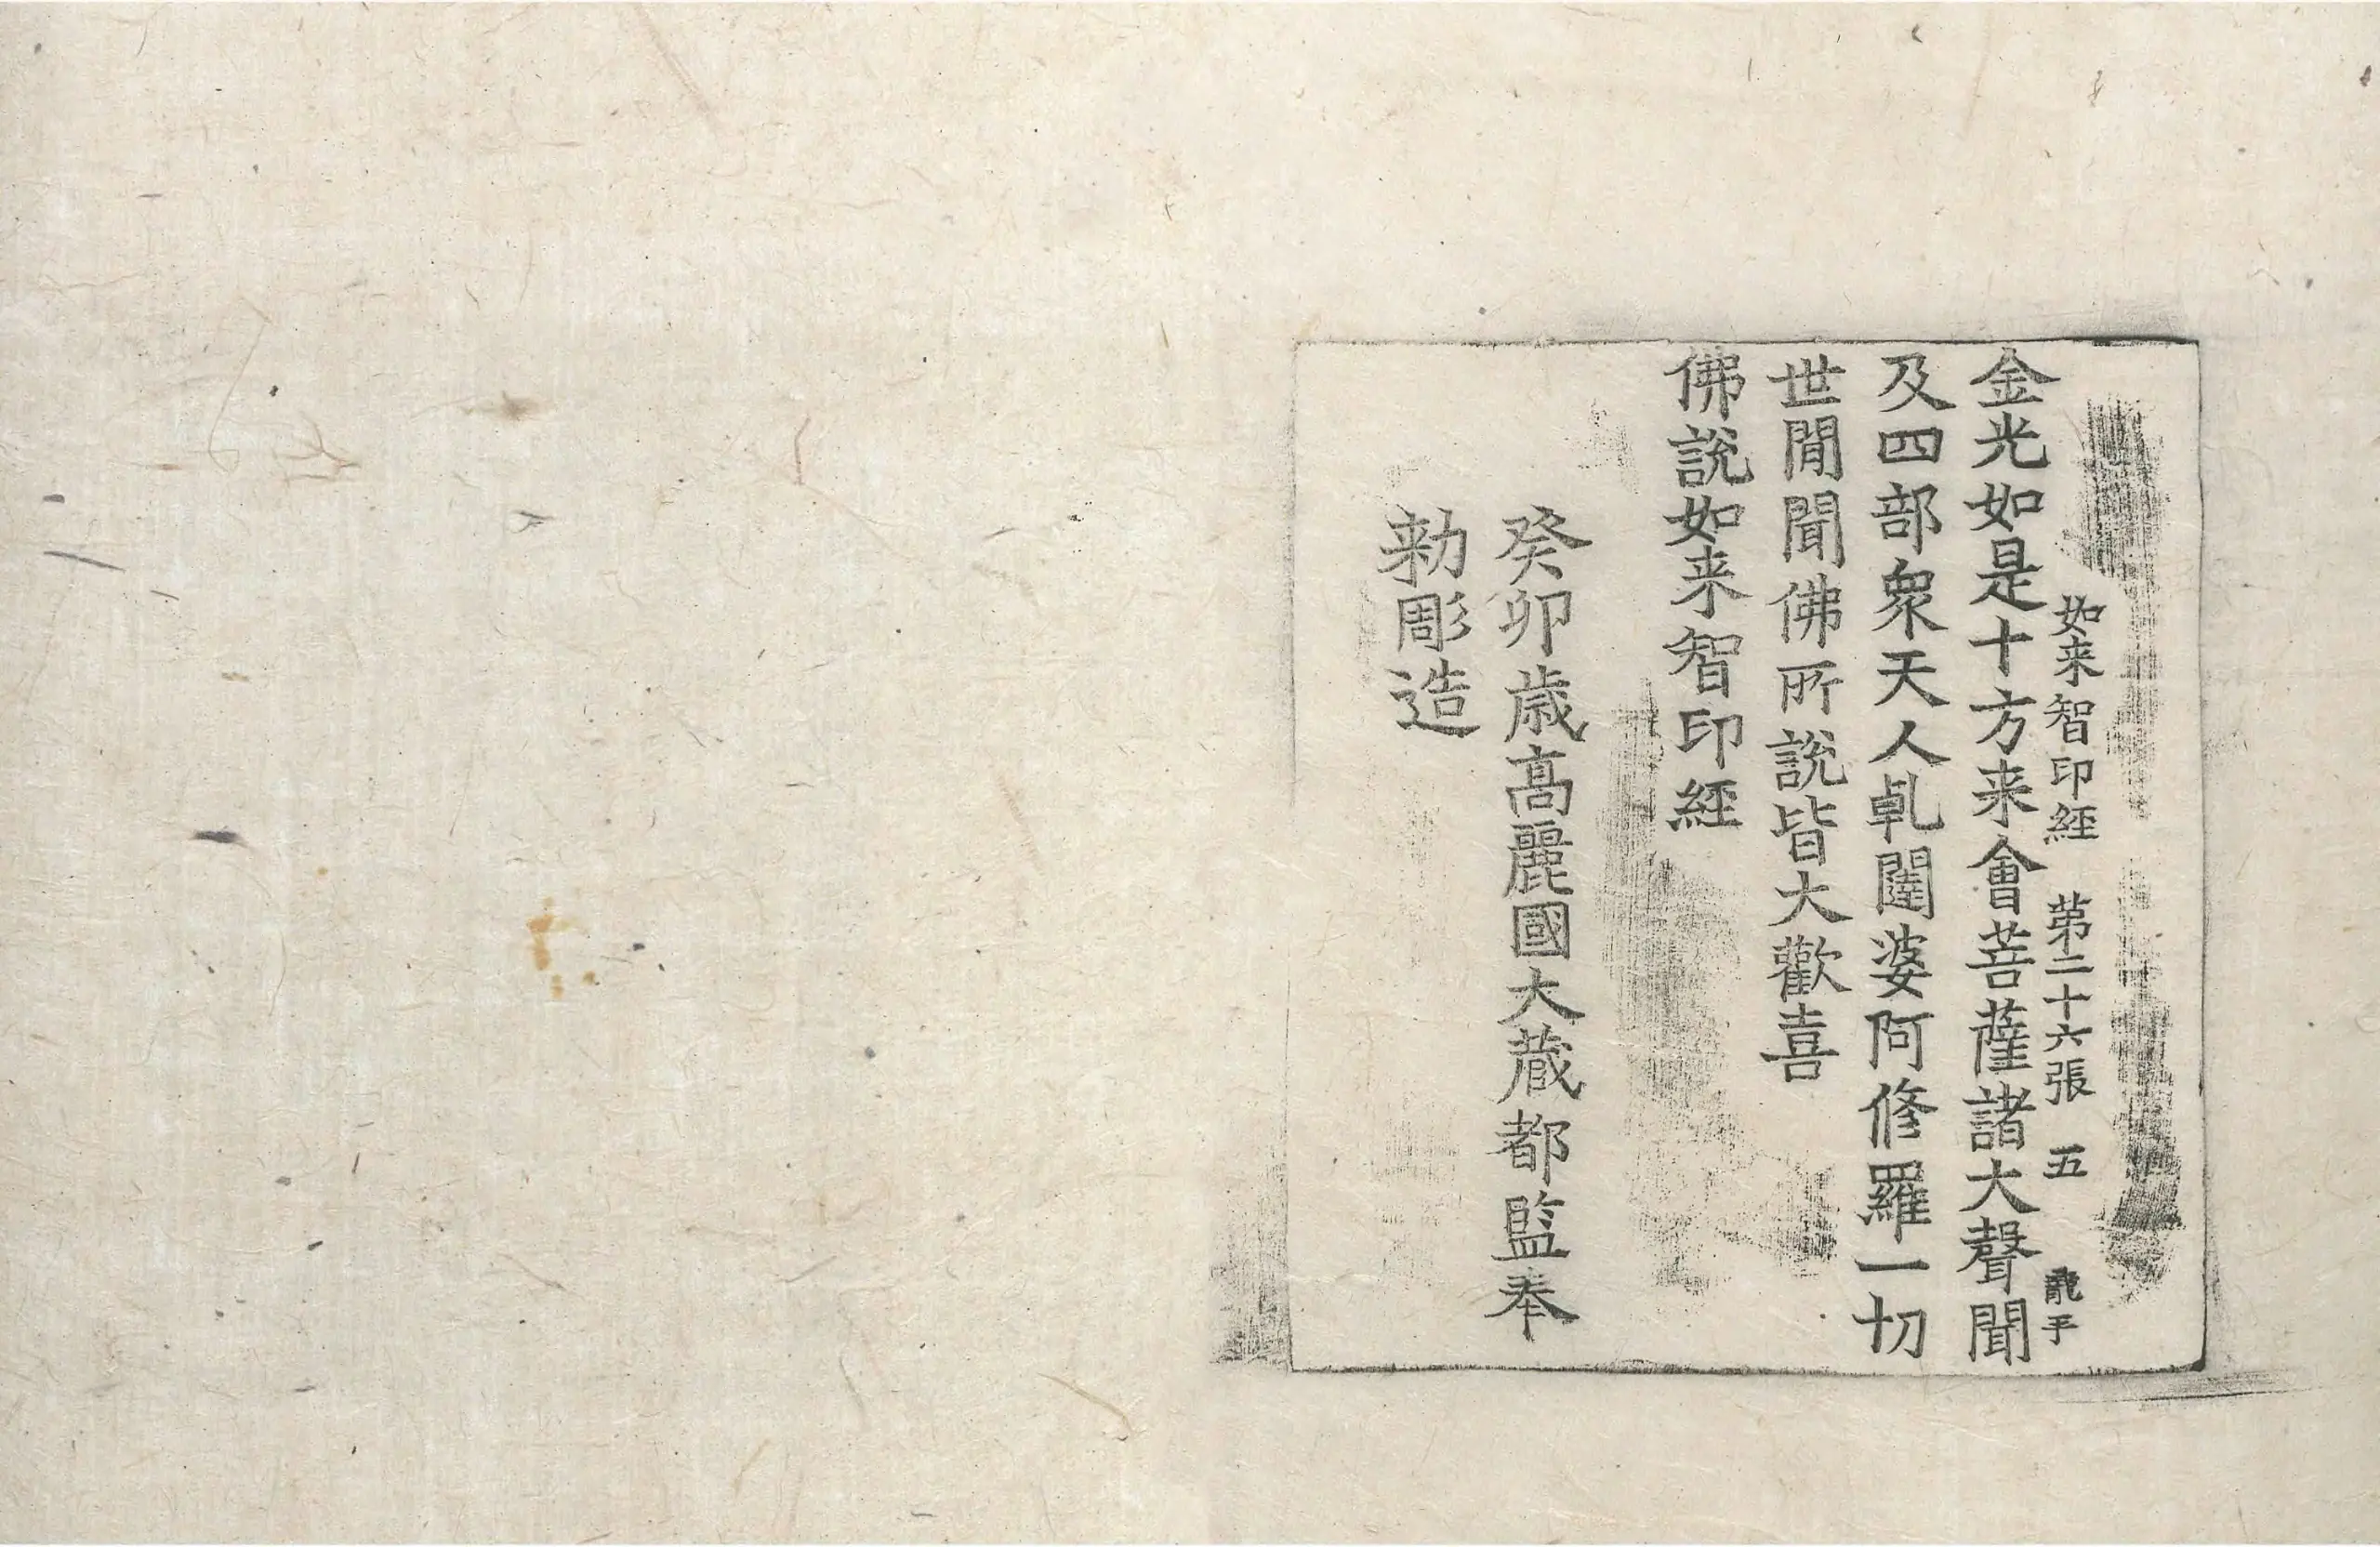 如来智印經 第二十六張 五
金光如是十方来會菩薩諸大聲聞
及四部衆天人乹闥婆阿修羅一切
世閒聞佛所說皆大歡喜
佛說如来智印經
癸卯歲高麗國大藏都監奉
勑彫造